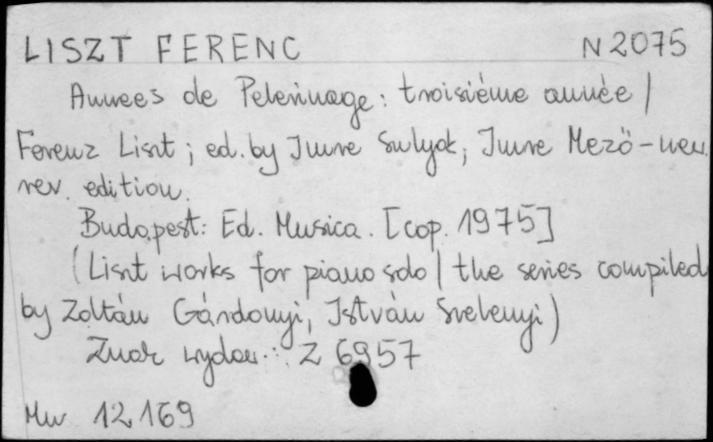 LISZT FERENC N 2075
Annees de Pelerinage: troisième année /
Ferenz Liszt ; ed. by Imre Sulyok, Imre Mezö – new
rev. edition.
Budapest: Ed. Musica. [cop. 1975]
(Liszt works for piano solo / the series compiled
by Zoltán Gárdonyi, István Szelenyi)
Znak wydaw.: Z 6957
Mn 12 169